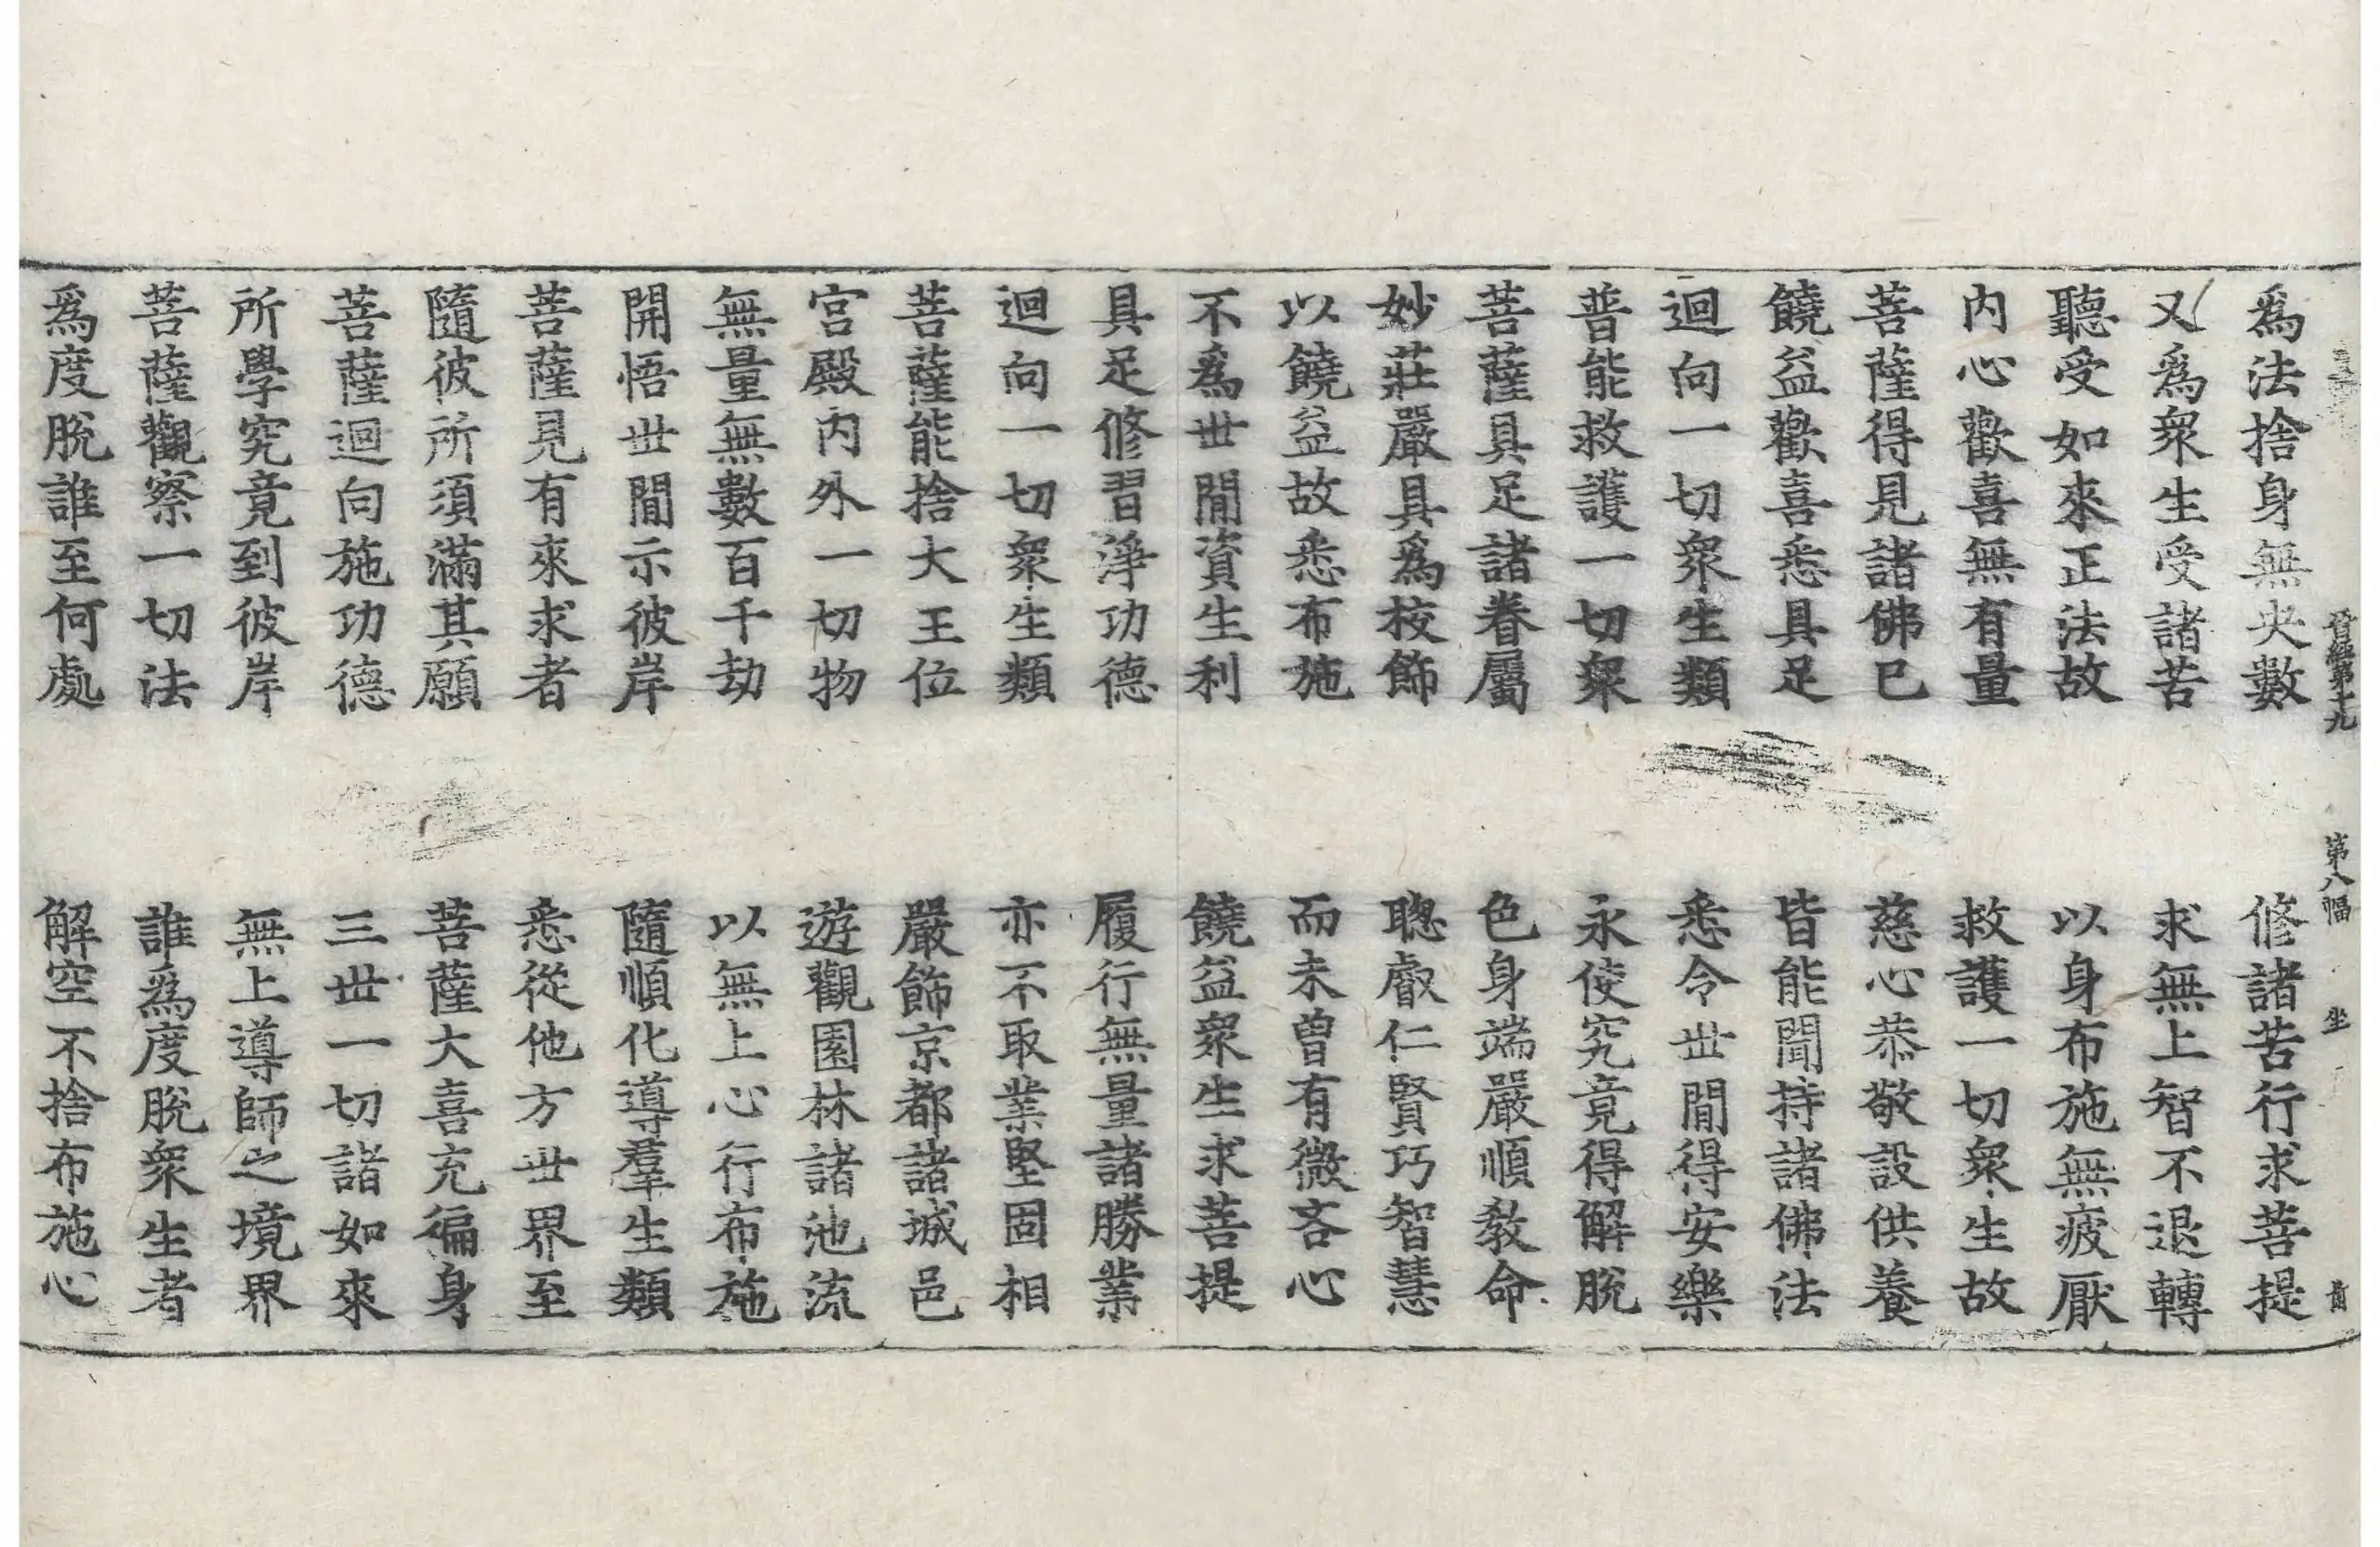 晉經第十九 第八幅 坐
為法捨身無央數 修諸苦行求菩提
又為衆生受諸苦 求無上智不退轉
聽受如來正法故 以身布施無疲厭
内心歡喜無有量 救護一切衆生故
菩薩得見諸佛已 慈心恭敬設供養
饒益歡喜悉具足 皆能聞持諸佛法
迴向一切衆生類 悉令世間得安樂
普能救護一切衆 永使究竟得解脫
菩薩具足諸眷屬 色身端嚴順教命
妙莊嚴具為校飾 聰叡仁賢巧智慧
以饒益故悉布施 而未曾有微吝心
不為世間資生利 饒益衆生求菩提
具足修習淨功德 履行無量諸勝業
迴向一切衆生類 亦不取業堅固相
菩薩能捨大王位 嚴飾京都諸城邑
宮殿内外一切物 遊觀園林諸池流
無量無數百千劫 以無上心行布施
開悟世間示彼岸 隨順化導羣生類
菩薩見有來求者 悉從他方世界至
隨彼所須滿其願 菩薩大喜充徧身
菩薩迴向施功德 三世一切諸如來
所學究竟到彼岸 無上導師之境界
菩薩觀察一切法 誰為度脫衆生者
為度脫誰至何處 解空不捨布施心